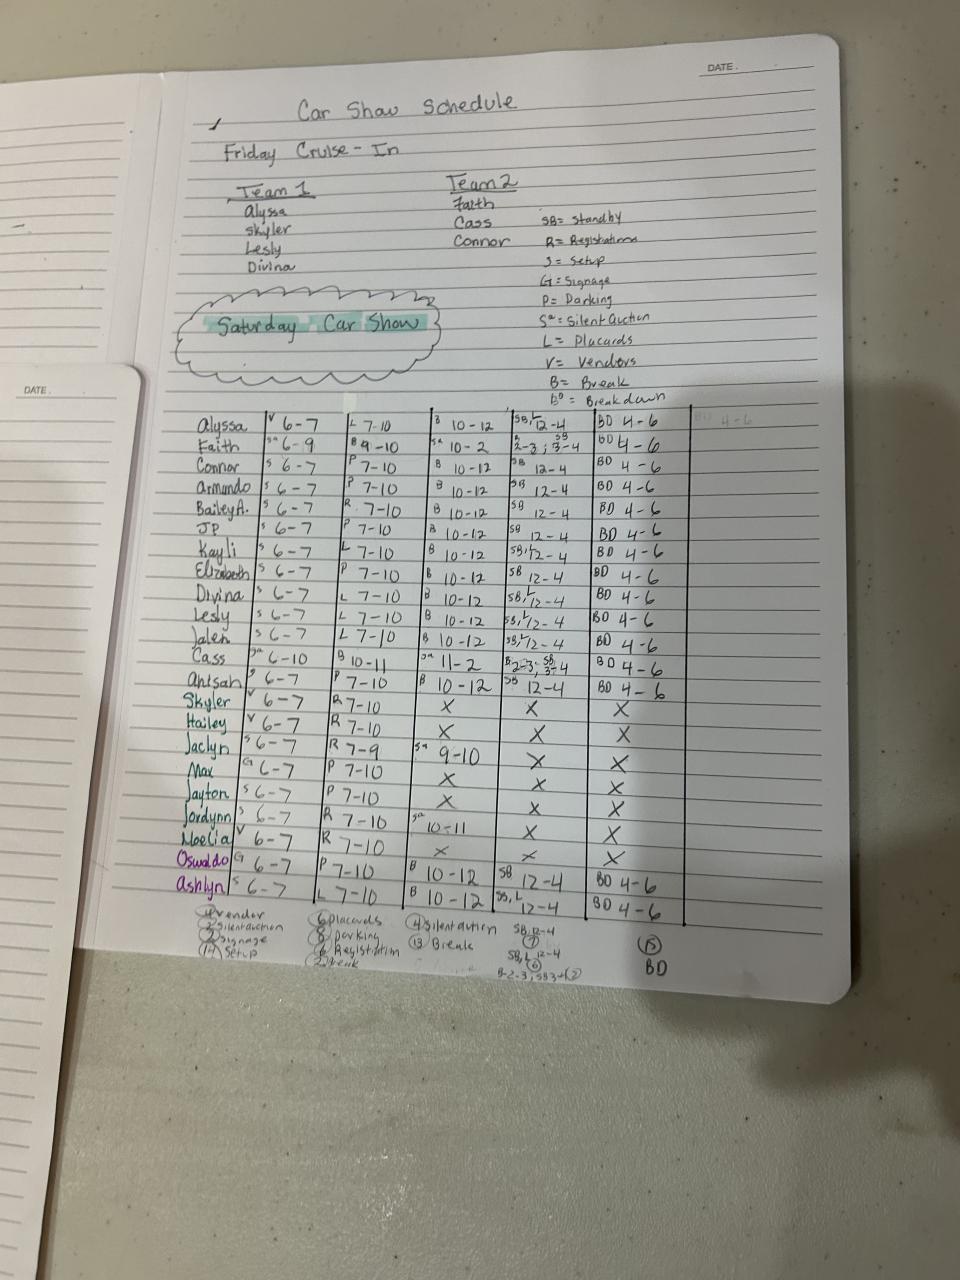 DATE.
Car Show Schedule
Friday Cruise-In
Team 1 Team 2
Alyssa Faith
Skyler Cass SB= Standby
Lesly Connor R= Registrations
Divina S= Setup
G= Signage
P= Parking
Sa= Silent Auction
Saturday Car Show
L= Placards
V= Vendors
B= Break
BD= Breakdown
DATE.
Alyssa V 6-7 L 7-10 B 10-12 SB, L 12-4 BD 4-6 BD 4-6
Faith Sa 6-9 B 9-10 Sa 10-2 B 2-3; SB 3-4 BD 4-6
Connor S 6-7 P 7-10 B 10-12 SB 12-4 BD 4-6
Armando S 6-7 P 7-10 B 10-12 SB 12-4 BD 4-6
Bailey A. S 6-7 R 7-10 B 10-12 SB 12-4 BD 4-6
JP S 6-7 P 7-10 B 10-12 SB 12-4 BD 4-6
Kayli S 6-7 L 7-10 B 10-12 SB, L 12-4 BD 4-6
Elizabeth S 6-7 P 7-10 B 10-12 SB 12-4 BD 4-6
Divina S 6-7 L 7-10 B 10-12 SB, L 12-4 BD 4-6
Lesly S 6-7 L 7-10 B 10-12 SB, L 12-4 BD 4-6
Jalen S 6-7 L 7-10 B 10-12 SB, L 12-4 BD 4-6
Cass Sa 6-10 B 10-11 Sa 11-2 B 2-3; SB 3-4 BD 4-6
Anisah S 6-7 P 7-10 B 10-12 SB 12-4 BD 4-6
Skyler V 6-7 R 7-10 X X X
Hailey V 6-7 R 7-10 X X X
Jaclyn S 6-7 R 7-9 Sa 9-10 X X
Max G 6-7 P 7-10 X X X
Jayton S 6-7 P 7-10 X X X
Jordynn S 6-7 R 7-10 Sa 10-11 X X
Noelia V 6-7 R 7-10 X X X
Oswaldo G 6-7 P 7-10 B 10-12 SB 12-4 BD 4-6
Ashlyn S 6-7 L 7-10 B 10-12 SB, L 12-4 BD 4-6
4 Vendor 6 Placards 4 Silent Aution SB, 12-4
2 Silent auction 8 Parking 13 Break 7 15
2 Signage 6 Registration SB, L 12-4 BD
14 Setup 2 Break 6
B-2-3; SB3-4 2